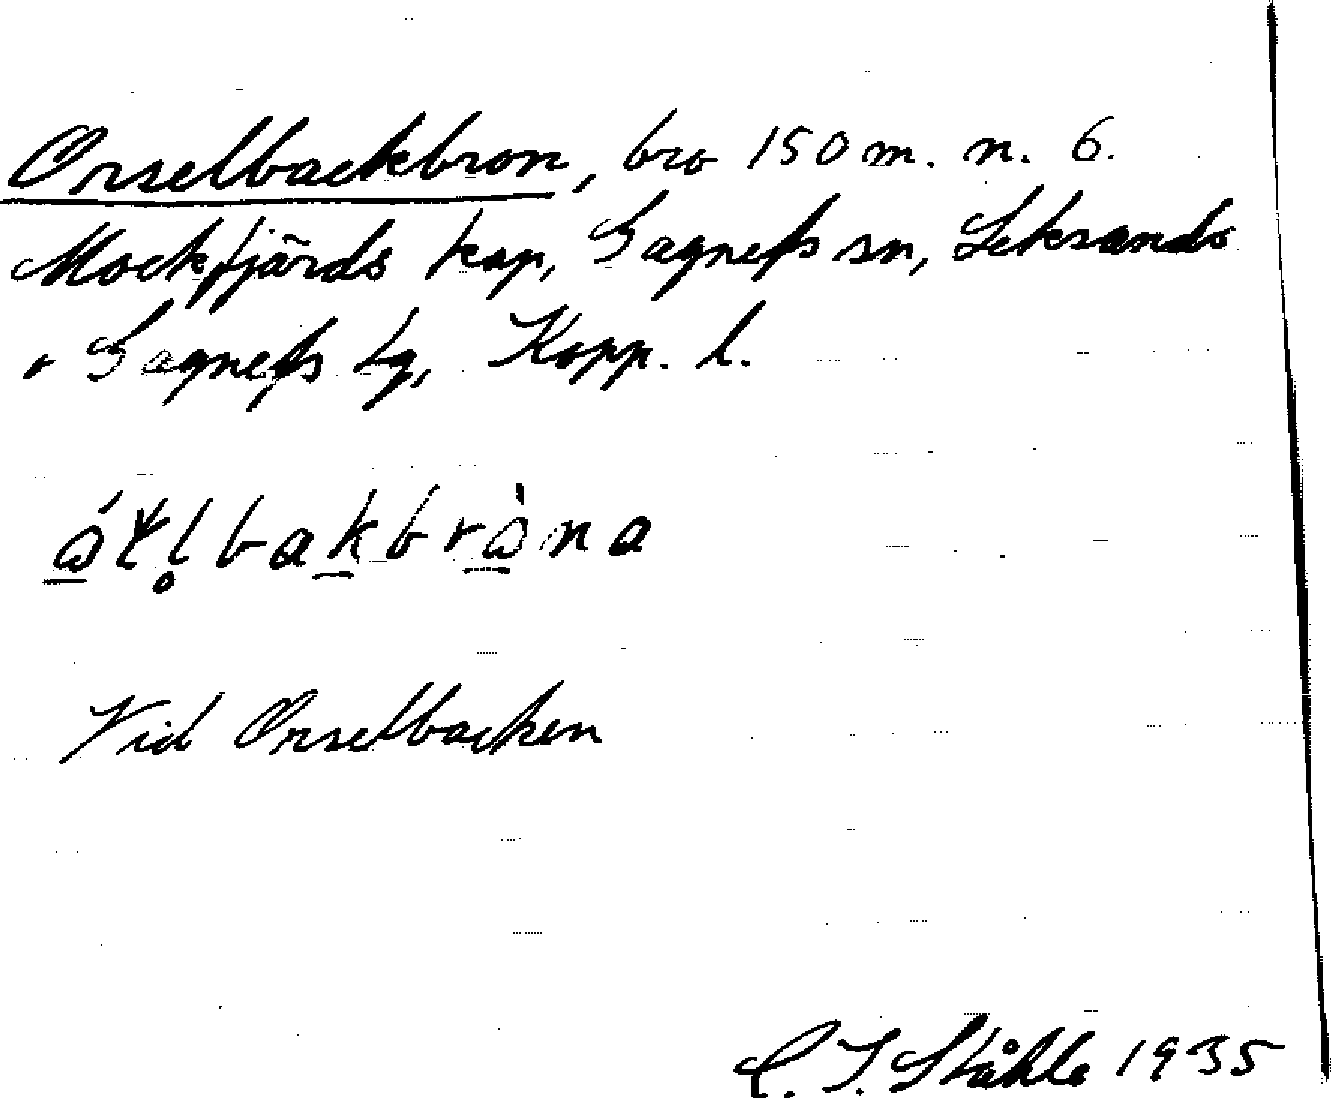 Orselbackbron, bro 150 m. n. 6.
Mockfjärds kap, Gagnefs sn, Leksands
o Gagnefs tg, Kopp. l.
Vid Orselbacken
C. I. Ståhle 1935